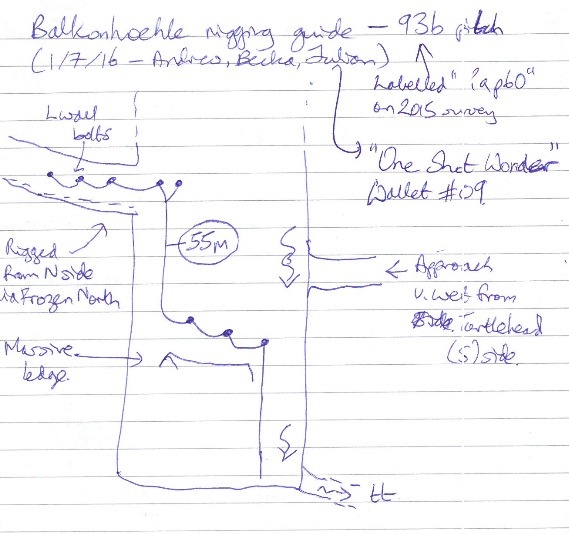 Balkonhoehle rigging guide - 93b pitch
(1/7/16 - Andrew, Becka, Julian)
Labelled "?apb0"
on 2015 survey
"One Shot Wonder"
Wallet #09
Lwall
bolts
55m
Rigged
from N side
via Frozen North
← Approach
v. wet from
Turtlehead
(S) side.
Massive
ledge.
tt